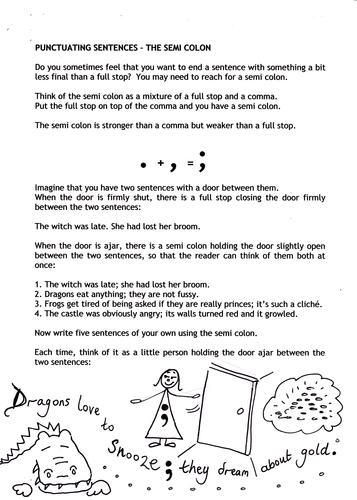 PUNCTUATING SENTENCES - THE SEMI COLON
Do you sometimes feel that you want to end a sentence with something a bit
less final than a full stop?  You may need to reach for a semi colon.
Think of the semi colon as a mixture of a full stop and a comma.
Put the full stop on top of the comma and you have a semi colon.
The semi colon is stronger than a comma but weaker than a full stop.
. + , = ;
Imagine that you have two sentences with a door between them.
When the door is firmly shut, there is a full stop closing the door firmly
between the two sentences:
The witch was late. She had lost her broom.
When the door is ajar, there is a semi colon holding the door slightly open
between the two sentences, so that the reader can think of them both at
once:
1. The witch was late; she had lost her broom.
2. Dragons eat anything; they are not fussy.
3. Frogs get tired of being asked if they are really princes; it's such a cliché.
4. The castle was obviously angry; its walls turned red and it growled.
Now write five sentences of your own using the semi colon.
Each time, think of it as a little person holding the door ajar between the
two sentences:
;
Dragons love
to
snooze ; they dream about gold.